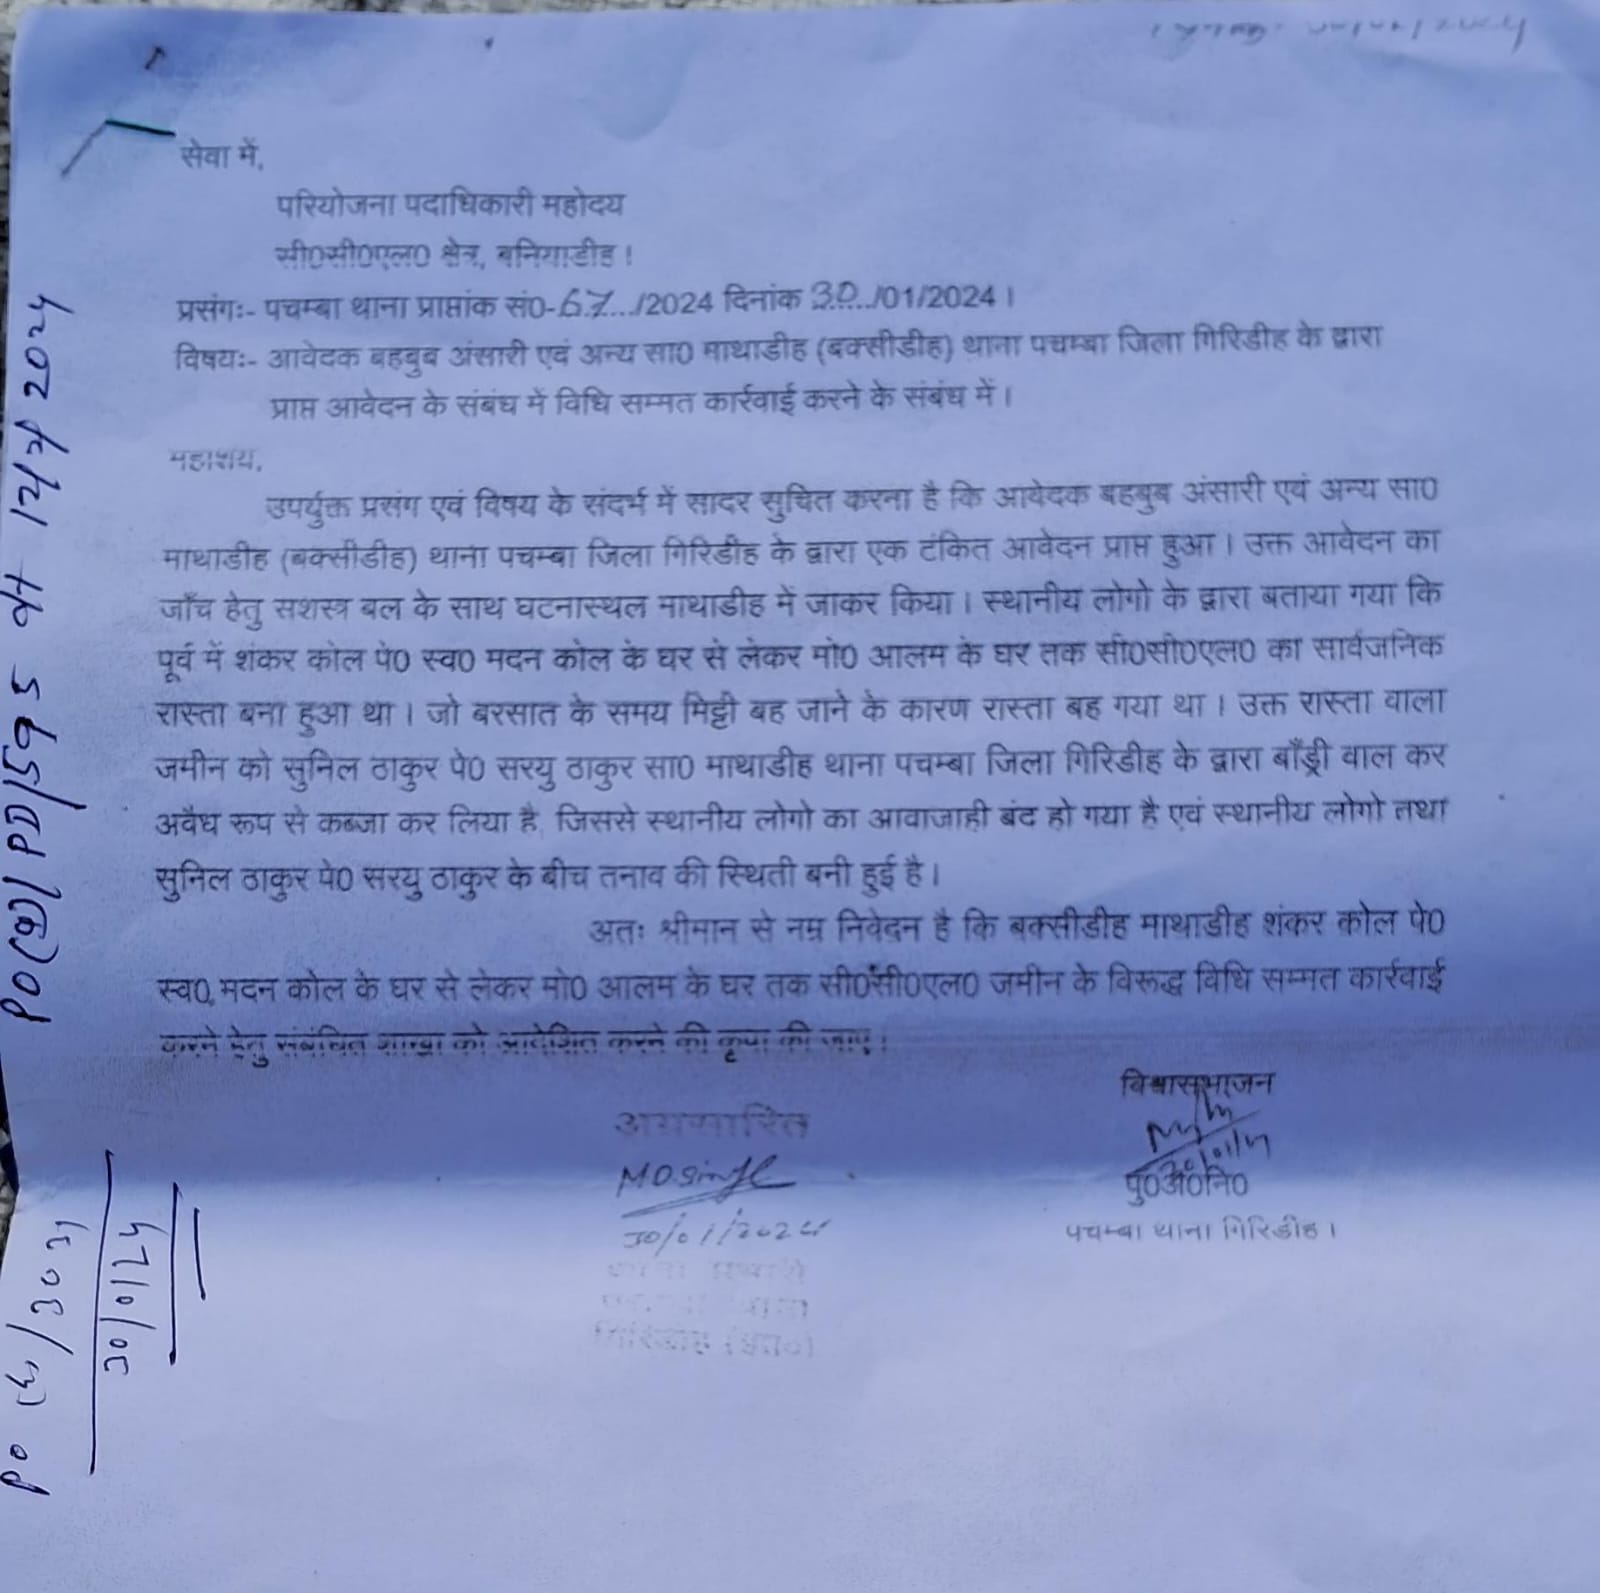 सेवा में,
परियोजना पदाधिकारी महोदय
सी0सी0एल0 क्षेत्र, बनियाडीह।
प्रसंगः- पचम्बा थाना प्राप्तांक सं0-67.../2024 दिनांक 30.../01/2024।
विषयः- आवेदक बहबुब अंसारी एवं अन्य सा0 माथाडीह (बक्सीडीह) थाना पचम्बा जिला गिरिडीह के द्वारा
प्राप्त आवेदन के संबंध में विधि सम्मत कार्रवाई करने के संबंध में।
महाशय,
उपर्युक्त प्रसंग एवं विषय के संदर्भ में सादर सुचित करना है कि आवेदक बहबुब अंसारी एवं अन्य सा0
माथाडीह (बक्सीडीह) थाना पचम्बा जिला गिरिडीह के द्वारा एक टंकित आवेदन प्राप्त हुआ। उक्त आवेदन का
जाँच हेतु सशस्त्र बल के साथ घटनास्थल माथाडीह में जाकर किया। स्थानीय लोगो के द्वारा बताया गया कि
पूर्व में शंकर कोल पे0 स्व0 मदन कोल के घर से लेकर मो0 आलम के घर तक सी0सी0एल0 का सार्वजनिक
रास्ता बना हुआ था। जो बरसात के समय मिट्टी बह जाने के कारण रास्ता बह गया था। उक्त रास्ता वाला
जमीन को सुनिल ठाकुर पे0 सरयु ठाकुर सा0 माथाडीह थाना पचम्बा जिला गिरिडीह के द्वारा बाँड्री वाल कर
अवैध रूप से कब्जा कर लिया है, जिससे स्थानीय लोगो का आवाजाही बंद हो गया है एवं स्थानीय लोगो तथा
सुनिल ठाकुर पे0 सरयु ठाकुर के बीच तनाव की स्थिती बनी हुई है।
अतः श्रीमान से नम्र निवेदन है कि बक्सीडीह माथाडीह शंकर कोल पे0
स्व0 मदन कोल के घर से लेकर मो0 आलम के घर तक सी0सी0एल0 जमीन के विरूद्ध विधि सम्मत कार्रवाई
करने हेतु संबंधित शाखा को आदेशित करने की कृपा की जाए।
विश्वासभाजन
पु0अ0नि0
पचम्बा थाना गिरिडीह।
अग्रसारित
30/01/2024
थाना प्रभारी
पचम्बा थाना
गिरिडीह (झा0)
30/01/24